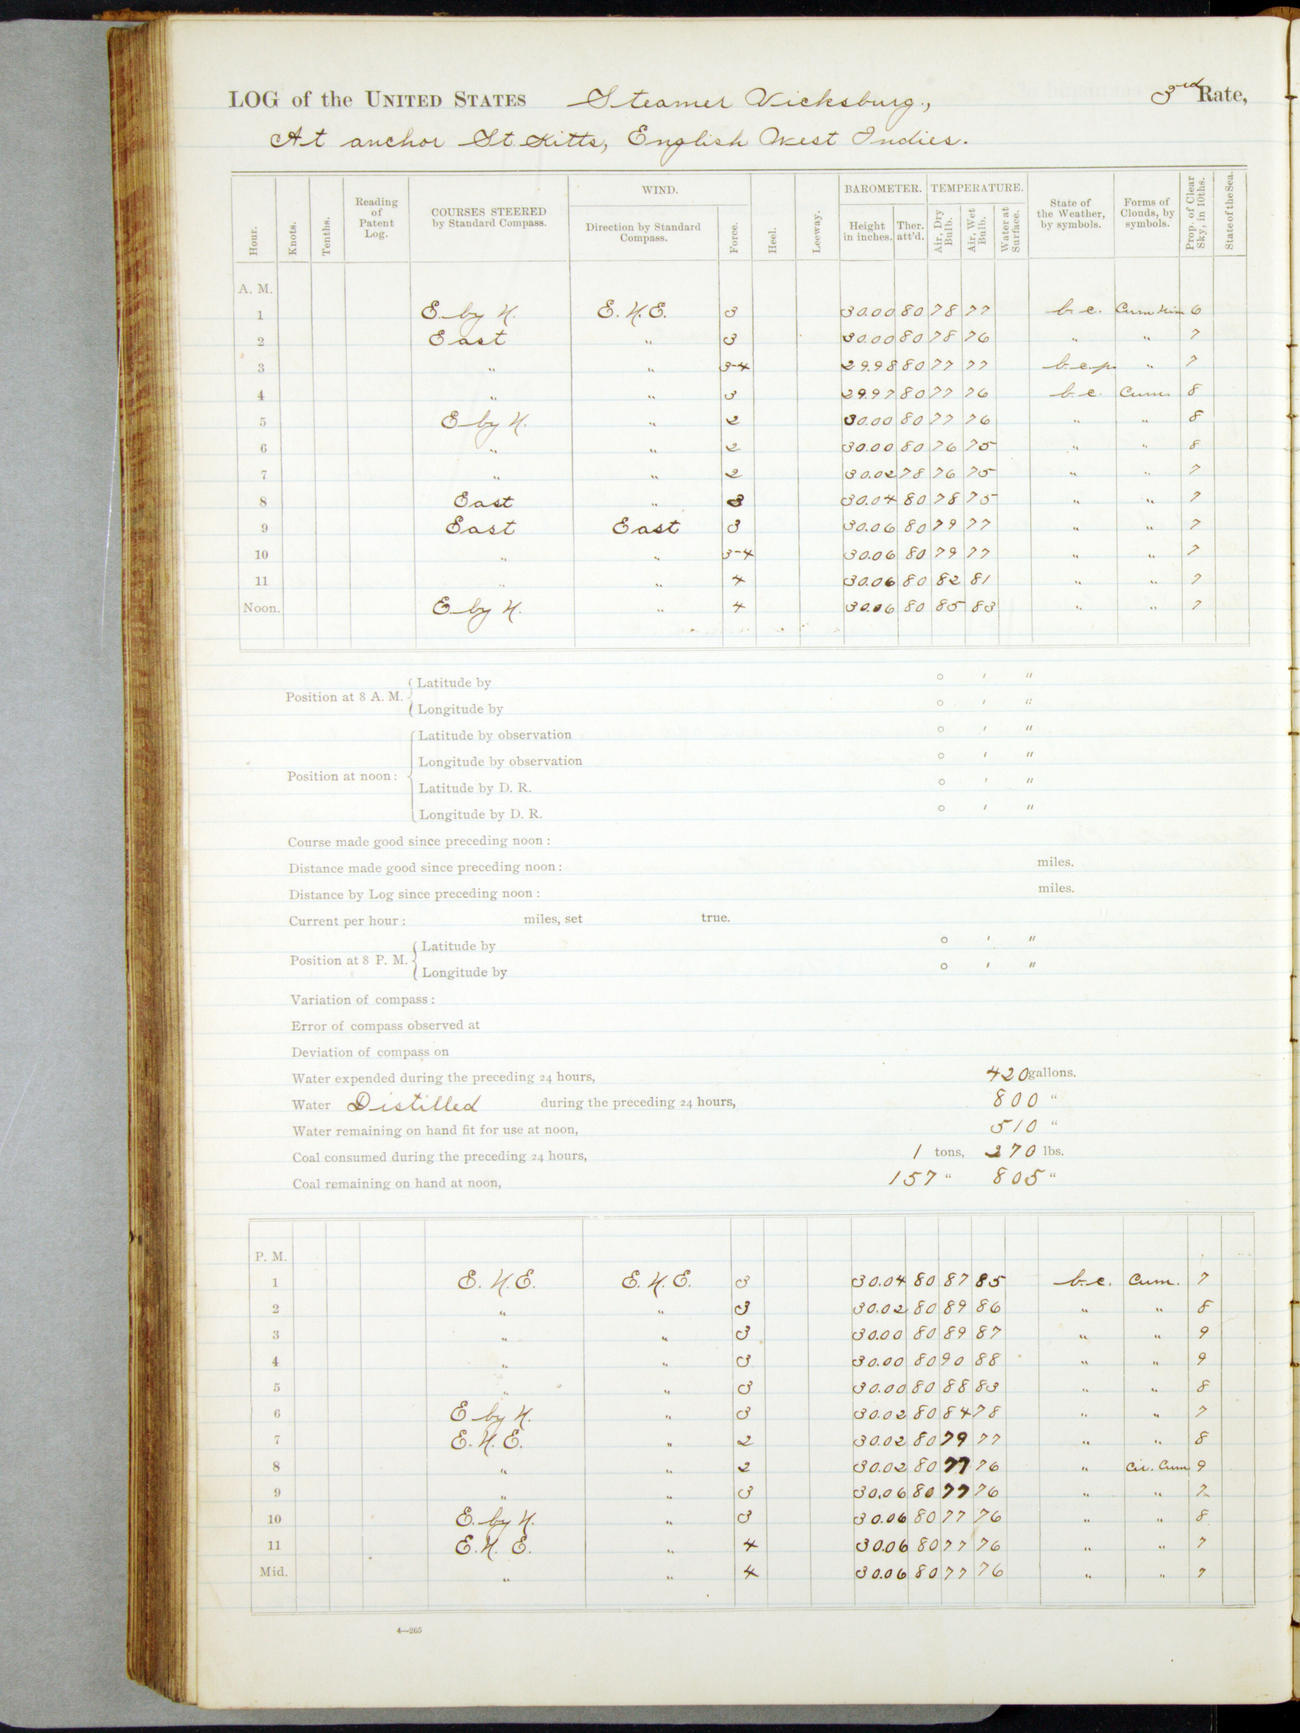 LOG of the UNITED STATES Steamer Vicksburg., 3rd Rate,
At anchor St. Kitts, English West Indies.
Hour. Knots. Tenths. Reading of Patent Log. COURSES STEERED by Standard Compass. WIND. Direction by Standard Compass. Force. Heel. Leeway. BAROMETER. Height in inches. Ther. att'd. TEMPERATURE. Air, Dry Bulb. Air, Wet Bulb. Water at Surface. State of the Weather, by symbols. Forms of Clouds, by symbols. Prop. of Clear Sky, in 10ths. State of the Sea.
A. M.
1 E. by N. E. N. E. 3 30.00 80 78 77 b.c. Cum Nim 6
2 East " 3 30.00 80 78 76 " " 7
3 " " 3-4 29.98 80 77 77 b.c.p. " 7
4 " " 3 29.97 80 77 76 b.c. Cum. 8
5 E by N. " 2 30.00 80 77 76 " " 8
6 " " 2 30.00 80 76 75 " " 8
7 " " 2 30.02 78 76 75 " " 7
8 East " 3 30.04 80 78 75 " " 7
9 East East 3 30.06 80 79 77 " " 7
10 " " 3-4 30.06 80 79 77 " " 7
11 " " 4 30.06 80 82 81 " " 7
Noon. E by N. " 4 30.06 80 85 83 " " 7
Position at 8 A. M. Latitude by ° ' "
Longitude by ° ' "
Position at noon: Latitude by observation ° ' "
Longitude by observation ° ' "
Latitude by D. R. ° ' "
Longitude by D. R. ° ' "
Course made good since preceding noon:
Distance made good since preceding noon: miles.
Distance by Log since preceding noon: miles.
Current per hour: miles, set true.
Position at 8 P. M. Latitude by ° ' "
Longitude by ° ' "
Variation of compass:
Error of compass observed at
Deviation of compass on
Water expended during the preceding 24 hours, 420 gallons.
Water Distilled during the preceding 24 hours, 800 "
Water remaining on hand fit for use at noon, 510 "
Coal consumed during the preceding 24 hours, 1 tons, 270 lbs.
Coal remaining on hand at noon, 157 " 805 "
P. M.
1 E. N. E. E. N. E. 3 30.04 80 87 85 b.c. Cum. 7
2 " " 3 30.02 80 89 86 " " 8
3 " " 3 30.00 80 89 87 " " 9
4 " " 3 30.00 80 90 88 " " 9
5 " " 3 30.00 80 88 83 " " 8
6 E by N. " 3 30.02 80 84 78 " " 7
7 E. N. E. " 2 30.02 80 79 77 " " 8
8 " " 2 30.02 80 77 76 " Cir. Cum 9
9 " " 3 30.06 80 77 76 " " 7
10 E. by N. " 3 30.06 80 77 76 " " 8
11 E. N. E. " 4 30.06 80 77 76 " " 7
Mid. " " 4 30.06 80 77 76 " " 7
4—265